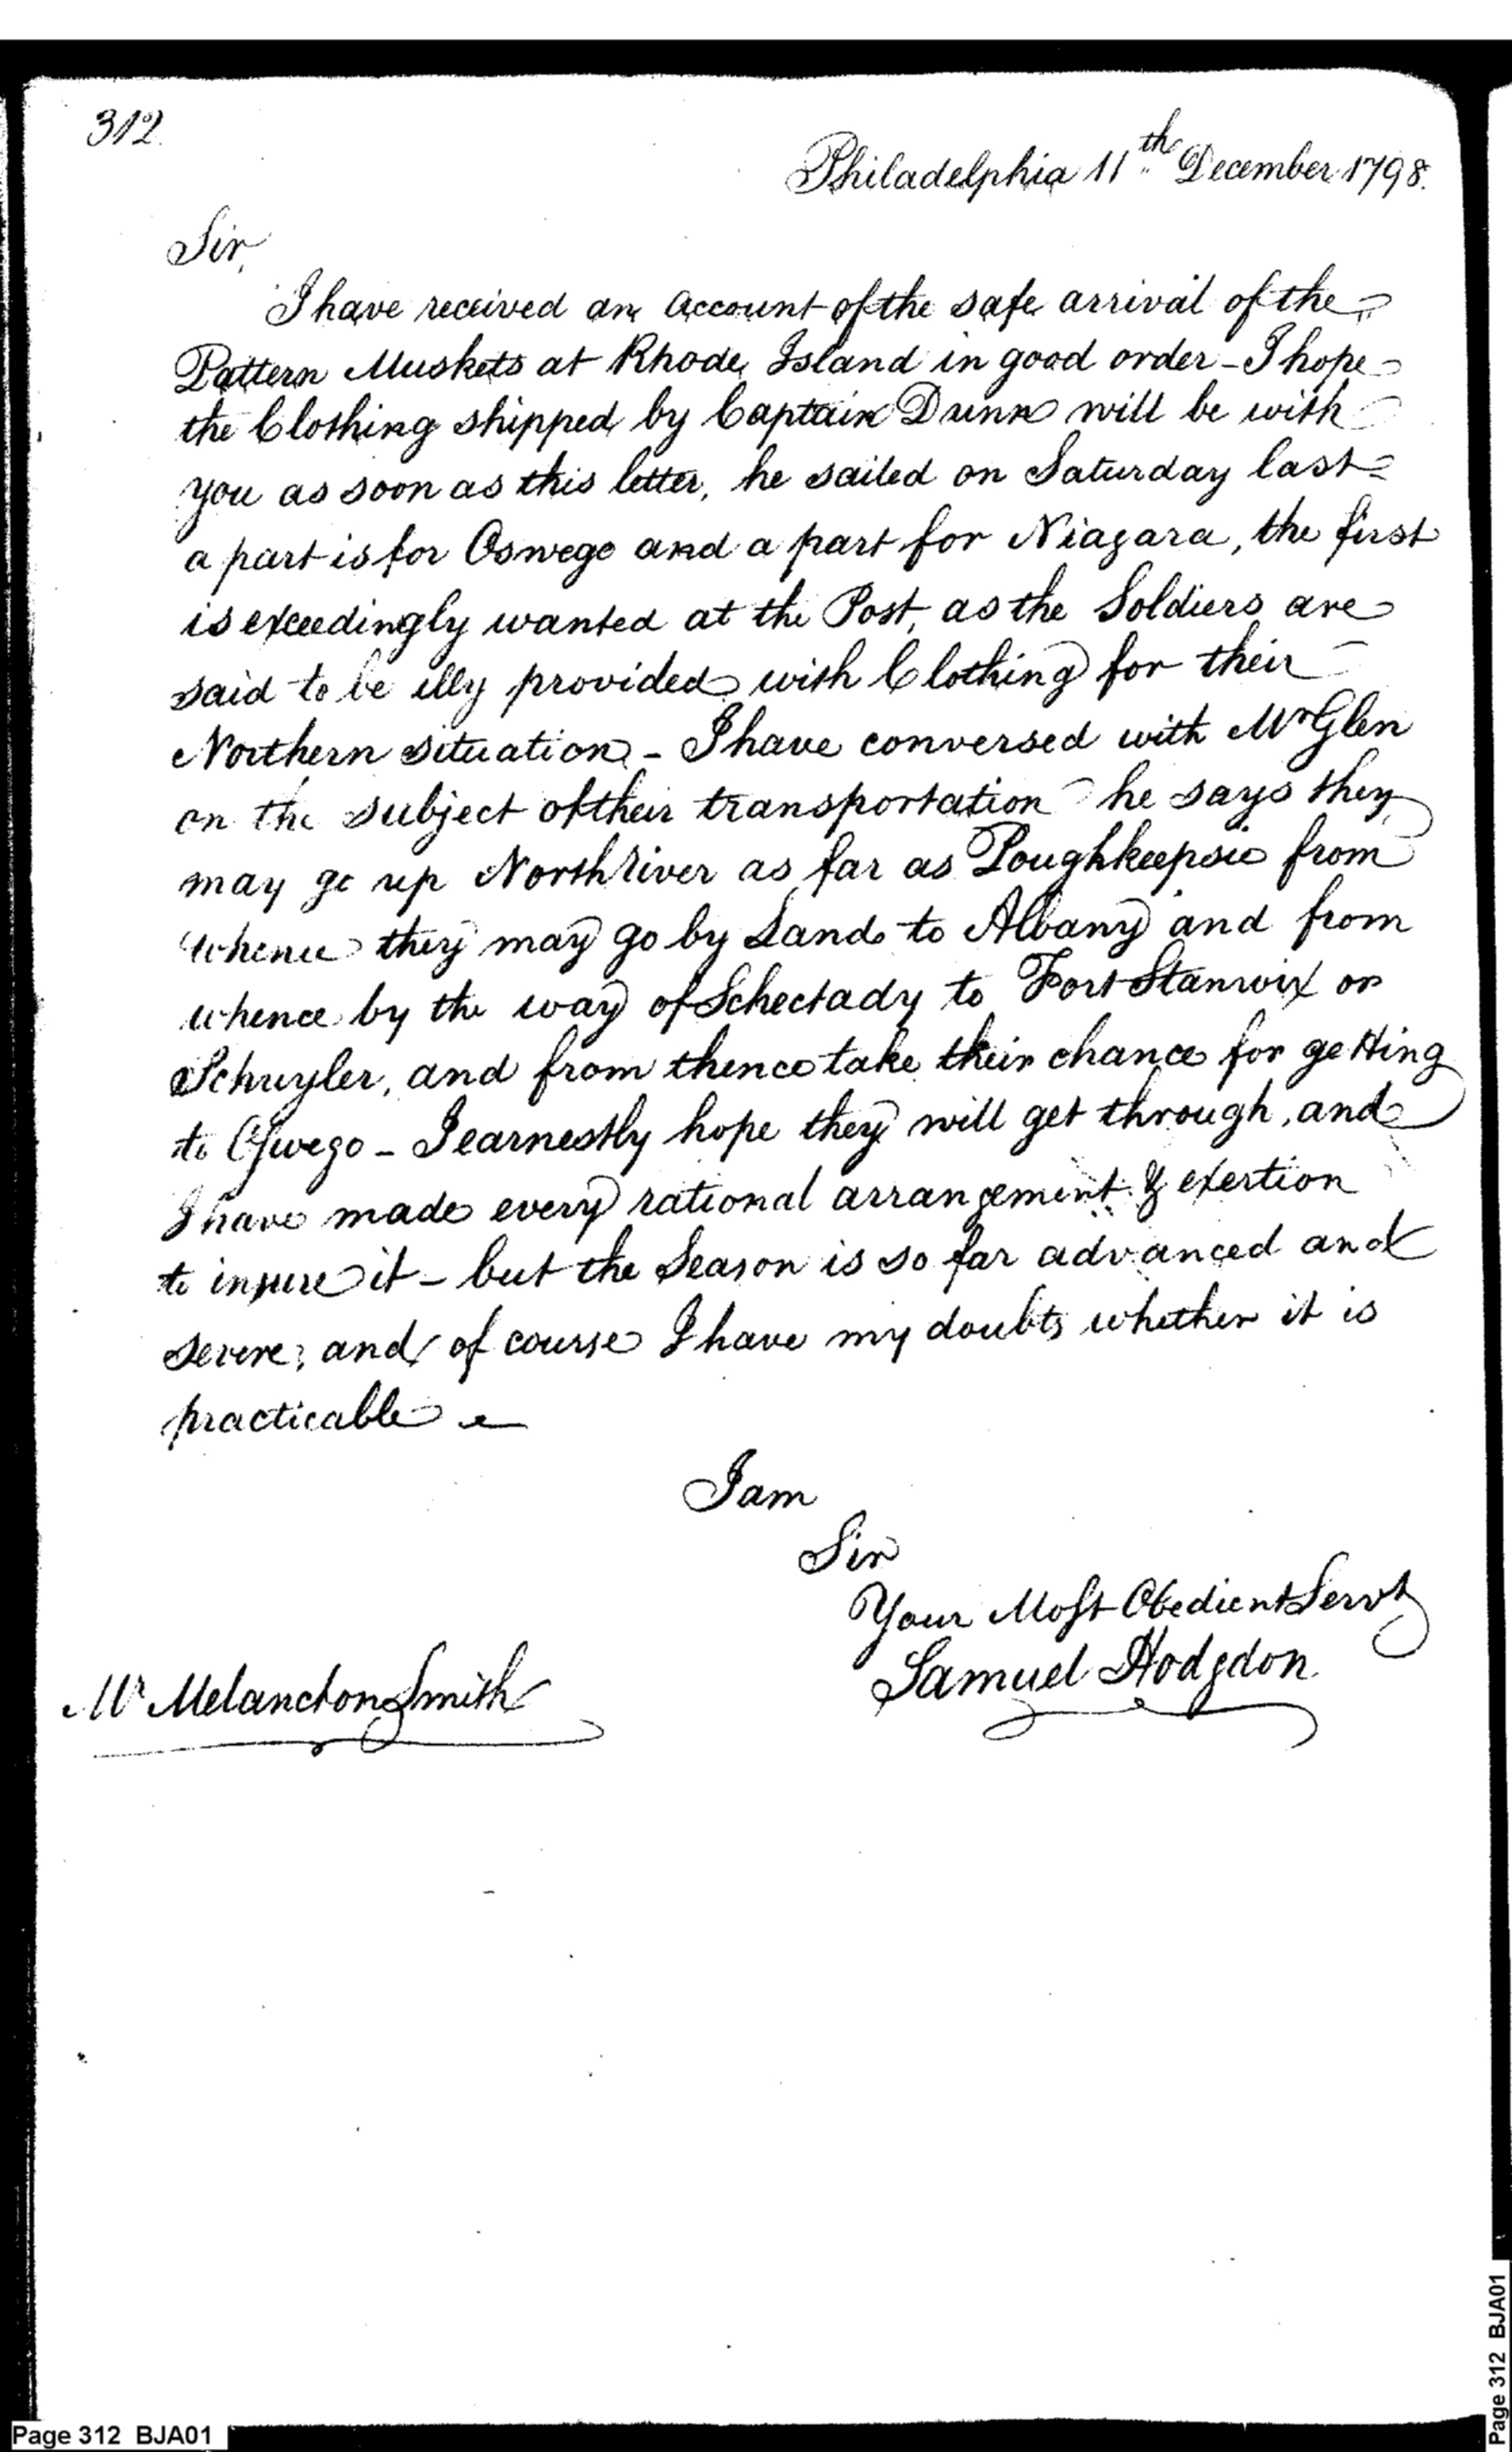 312.
Philadelphia 11th December 1798.
Sir,
I have received an account of the safe arrival of the
Pattern Muskets at Rhode Island in good order - I hope
the Clothing shipped by Captain Dunn will be with
you as soon as this letter, he sailed on Saturday last
a part is for Oswego and a part for Niagara, the first
is exceedingly wanted at the Post, as the Soldiers are
said to be illy provided with Clothing for their
Northern situation - I have conversed with Mr Glen
on the subject of their transportation he says they
may go up North River as far as Poughkeepsie from
whence they may go by Land to Albany and from
whence by the way of Schectady to Fort Stanwix or
Schuyler, and from thence take their chance for getting
to Oswego - I earnestly hope they will get through, and
I have made every rational arrangement & exertion
to insure it - but the Season is so far advanced and
severe, and of course I have my doubts whether it is
practicable -
I am
Sir
Your Most Obedient Servt
Samuel Hodgdon
Mr Melancton Smith
Page 312 BJA01
Page 312 BJA01